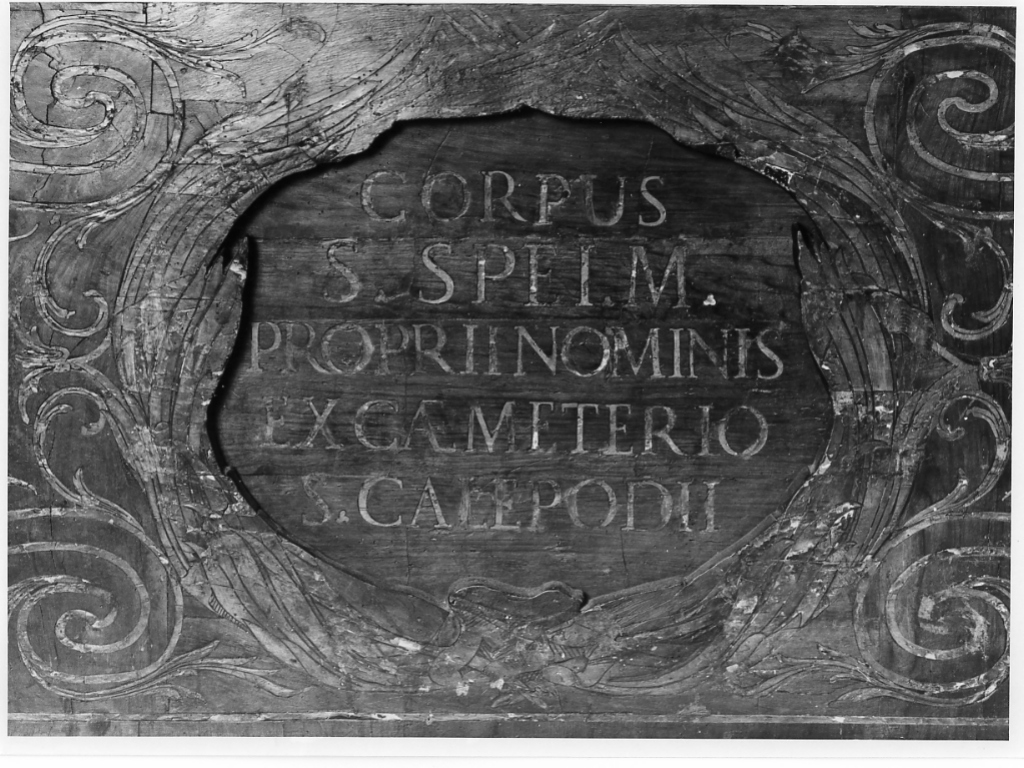 CORPUS
S. SPEI. M.
PROPRII NOMINIS
EX CAMETERIO
S. CALEPODII